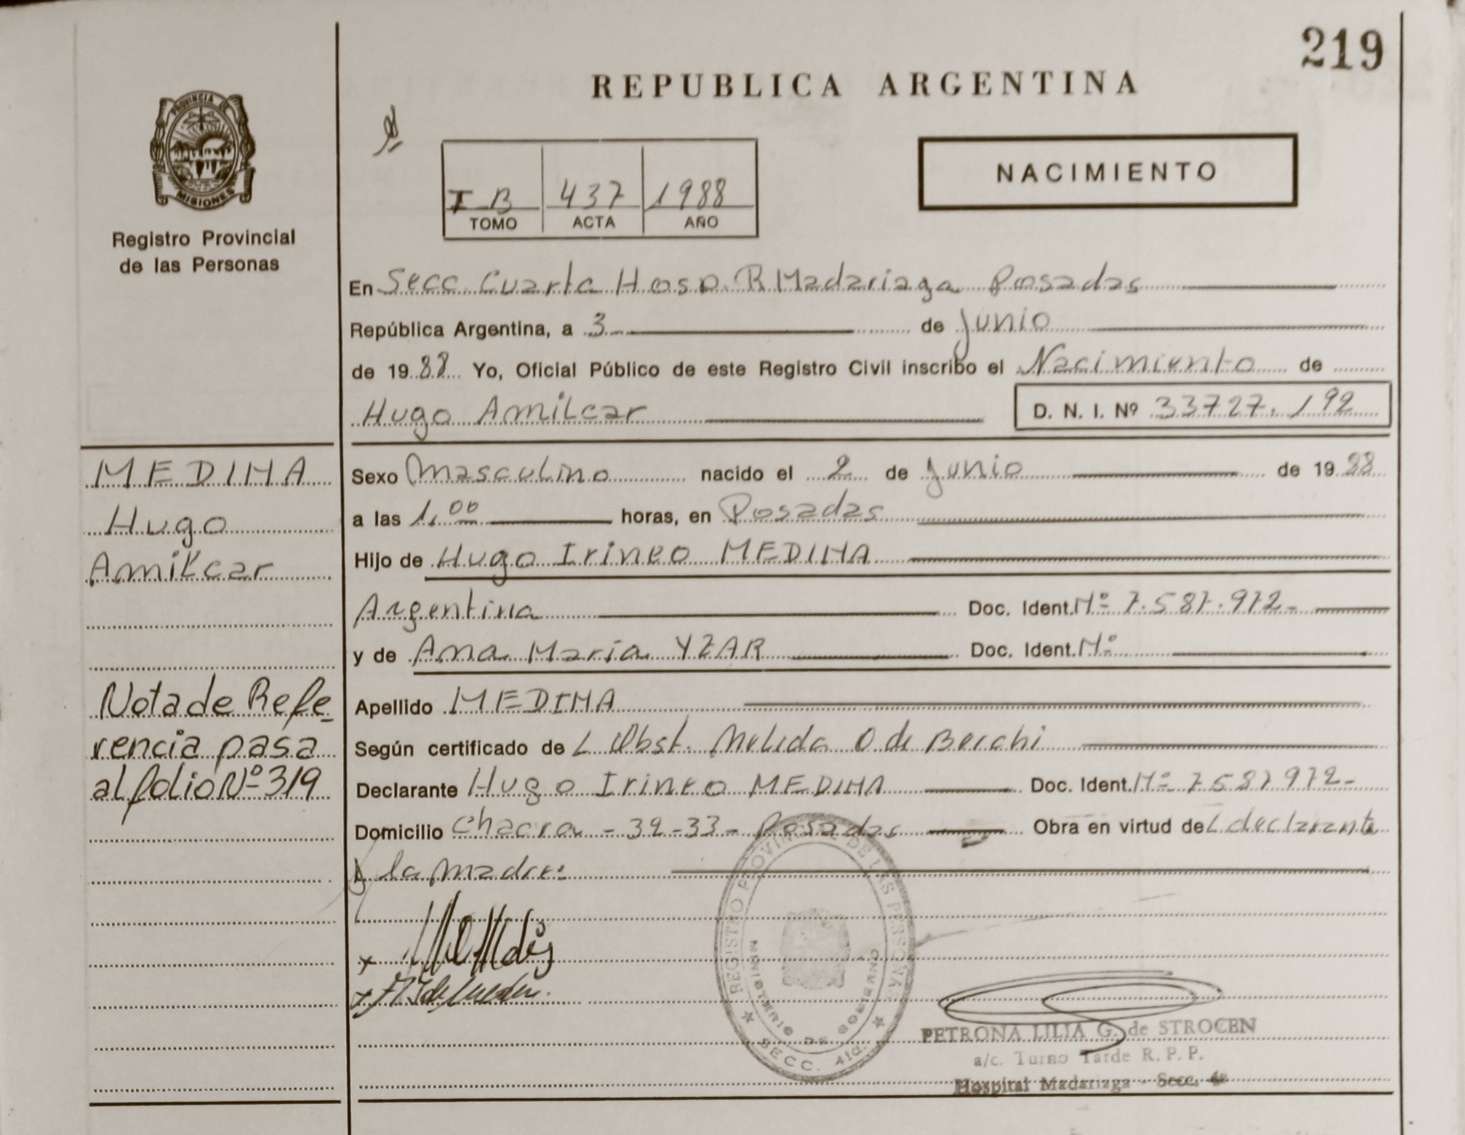 219
REPUBLICA ARGENTINA
PROVINCIA DE
MISIONES
Registro Provincial
de las Personas
I B 437 1988
TOMO ACTA AÑO
NACIMIENTO
En Secc. Cuarta Hosp. R Madariaga Posadas
República Argentina, a 3 de Junio
de 1988 Yo, Oficial Público de este Registro Civil inscribo el Nacimiento de
Hugo Amilcar D. N. I. Nº 33727.192
MEDINA
Hugo
Amilcar
Nota de Refe-
rencia pasa
al folio Nº 319
Sexo Masculino nacido el 2 de Junio de 1988
a las 1,00 horas, en Posadas
Hijo de Hugo Irineo MEDINA
Argentina Doc. Ident. Nº 7.587.972-
y de Ana María YZAR Doc. Ident. Nº
Apellido MEDINA
Según certificado de L. Obst. Nelida O. de Berchi
Declarante Hugo Irineo MEDINA Doc. Ident. Nº 7587972-
Domicilio Chacra - 32-33- Posadas Obra en virtud de L declarante
y la madre
REGISTRO PROVINCIAL DE LAS PERSONAS
MINISTERIO DE GOBIERNO
SECC. 4ta.
PETRONA LILIA G. de STROCEN
a/c. Turno Tarde R. P. P.
Hospital Madariaga - Secc. 4a